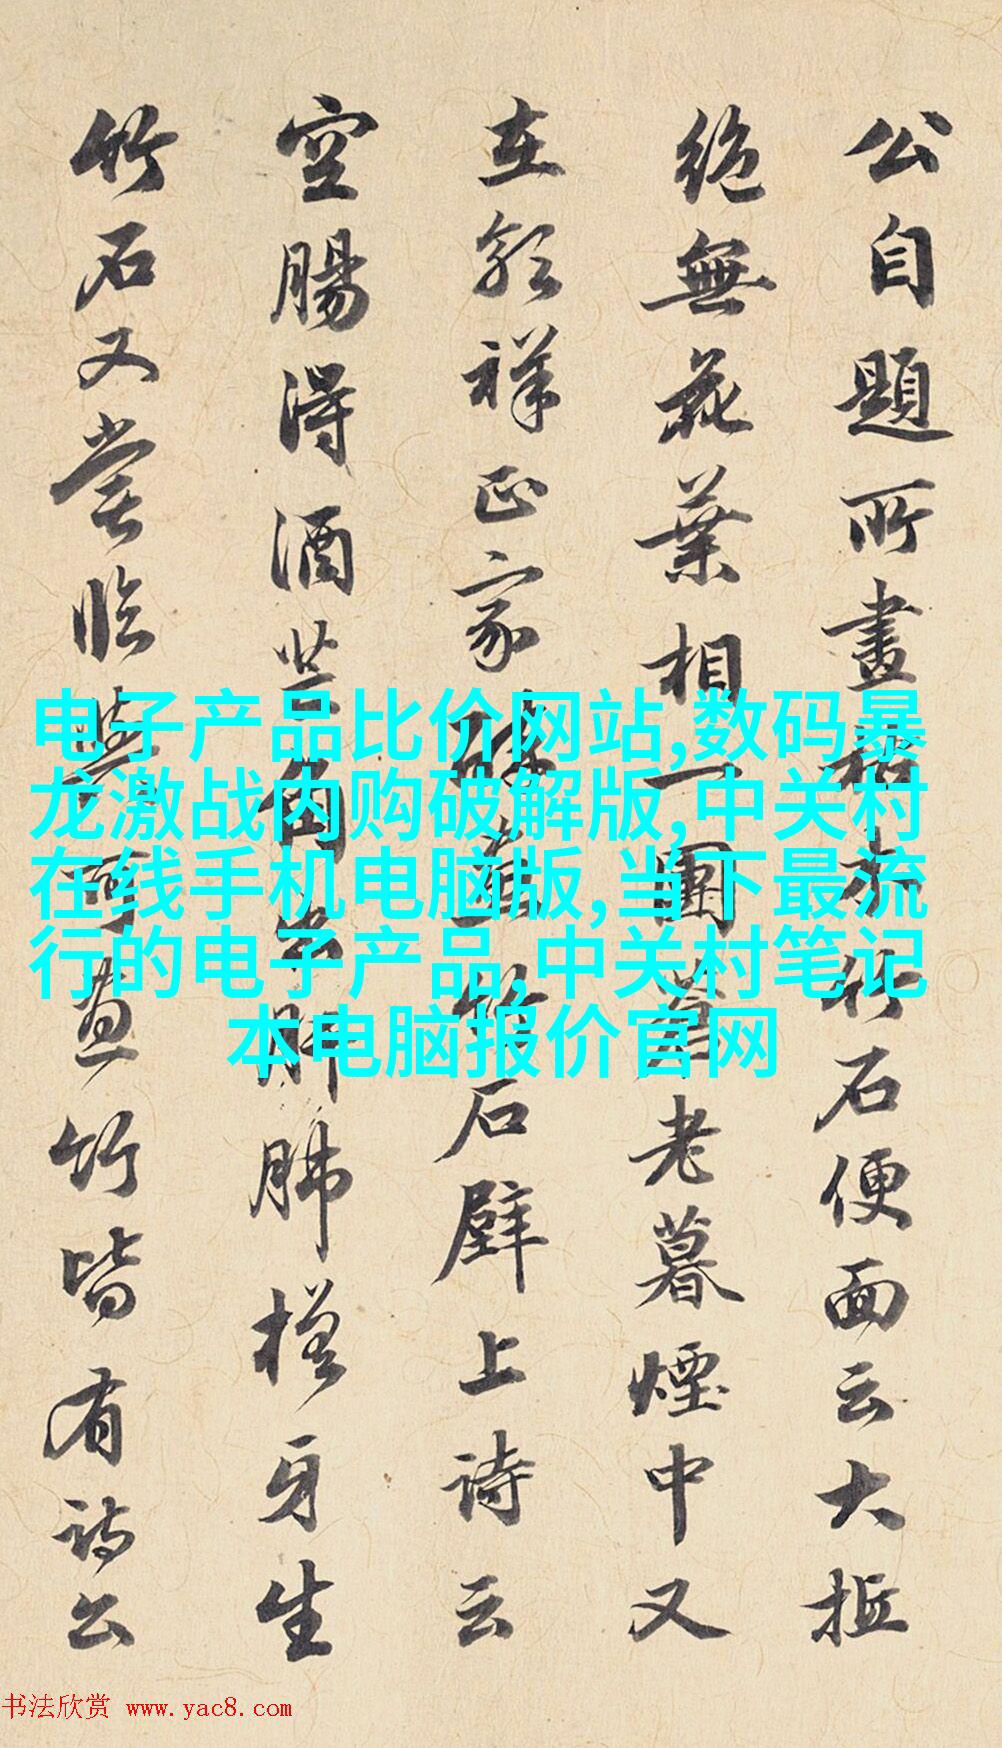 公自題所畫枯木竹石便面云大抵
絶無花葉相一團蒼老暮煙中又
在郭祥正家醉畫竹石壁上詩云
空腸得酒芒角出肝肺槎牙生
竹石又嘗臨與可畫竹皆有詩公
电子产品比价网站,数码暴
龙激战内购破解版,中关村
在线手机电脑版,当下最流
行的电子产品,中关村笔记
本电脑报价官网
书法欣赏 www.yac8.com